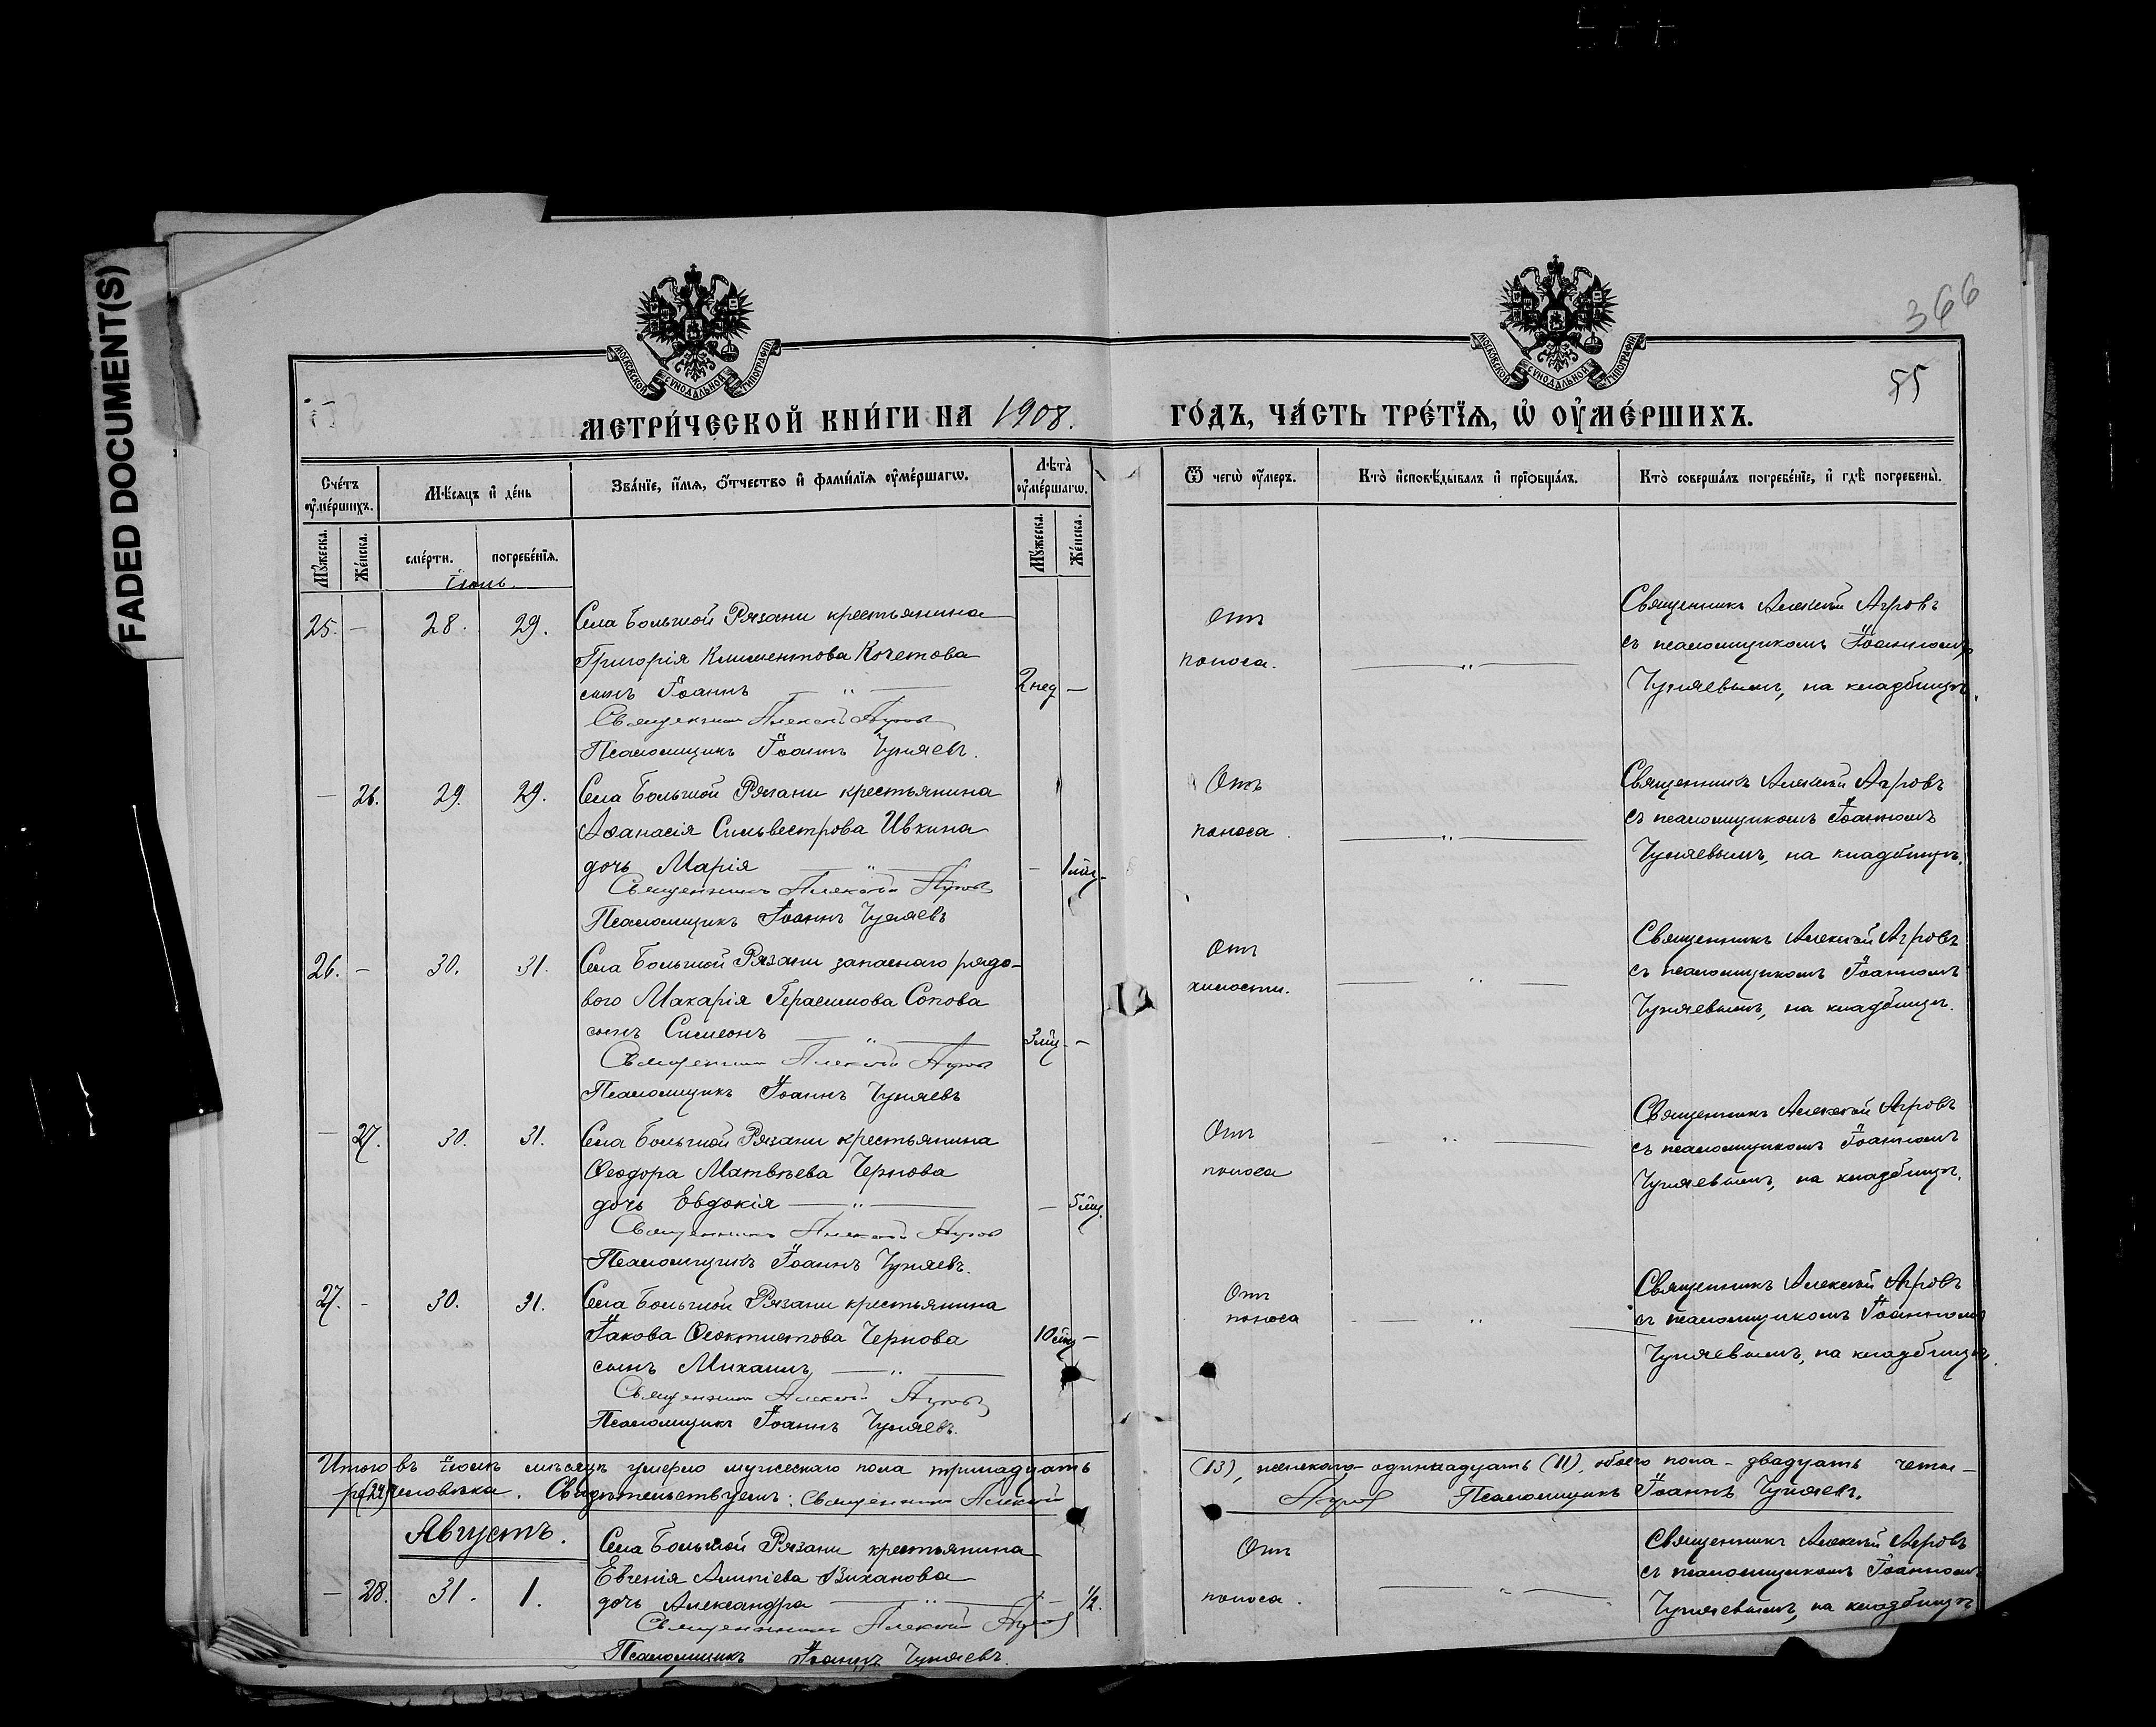 FADED DOCUMENT(S)
366
55
МОСКОВСКОЙ СѴНОДАЛЬНОЙ ТИПОГРАФІИ
МОСКОВСКОЙ СѴНОДАЛЬНОЙ ТИПОГРАФІИ
МЕТРИ́ЧЕСКОЙ КНИ́ГИ НА 1908. ГО́ДЪ, ЧА́СТЬ ТРЕ́ТЇѦ, Ѡ҆ ОУ҆МЕ́РШИХЪ.
Сче́тъ оу҆ме́ршихъ.
Мѣ́сяцъ и҆ де́нь
Зва́нїе, и҆́мѧ, ѻ҆́тчество и҆ фами́лїѧ оу҆ме́ршагѡ.
Лѣта̀ оу҆ме́ршагѡ.
Ѿ чегѡ̀ оу҆́меръ.
Кто̀ и҆сповѣ́дывалъ и҆ прїѡбща́лъ.
Кто̀ соверша́лъ погребе́нїе, и҆ гдѣ̀ погребены̀.
Мꙋ́жеска.
Же́нска.
сме́рти.
погребе́нїѧ.
Мꙋ́жеска.
Же́нска.
Іюль.
25. — 28. 29. Села Большой Рязани крестьянина
Григорія Климентова Кочетова
сынъ Іоаннъ — " — 2 нед —
Священникъ Алексѣй Агровъ
Псаломщикъ Іоаннъ Чуняевъ.
Отъ
поноса. — " —
Священникъ Алексѣй Агровъ
съ псаломщикомъ Іоанномъ
Чуняевымъ, на кладбищѣ.
— 26. 29. 29. Села Большой Рязани крестьянина
Аѳанасія Сильвестрова Ивкина
дочь Марія — " — — 1 мѣс.
Священникъ Алексѣй Агровъ
Псаломщикъ Іоаннъ Чуняевъ
Отъ
поноса. — " —
Священникъ Алексѣй Агровъ
съ псаломщикомъ Іоанномъ
Чуняевымъ, на кладбищѣ.
26. — 30. 31. Села Большой Рязани запаснаго рядо-
вого Макарія Герасимова Сопова
сынъ Симеонъ — " — 3 мѣс. —
Священникъ Алексѣй Агровъ
Псаломщикъ Іоаннъ Чуняевъ
Отъ
хилости. — " —
Священникъ Алексѣй Агровъ
съ псаломщикомъ Іоанномъ
Чуняевымъ, на кладбищѣ.
— 27. 30. 31. Села Большой Рязани крестьянина
Ѳеодора Матвѣева Чернова
дочь Евдокія — " — — 5 мѣс.
Священникъ Алексѣй Агровъ
Псаломщикъ Іоаннъ Чуняевъ.
Отъ
поноса — " —
Священникъ Алексѣй Агровъ
съ псаломщикомъ Іоанномъ
Чуняевымъ, на кладбищѣ.
27. — 30. 31. Села Большой Рязани крестьянина
Іакова Ѳеоктистова Чернова 10 мѣс —
сынъ Михаилъ — " —
Священникъ Алексѣй Агровъ
Псаломщикъ Іоаннъ Чуняевъ.
Отъ
поноса — " —
Священникъ Алексѣй Агровъ
съ псаломщикомъ Іоанномъ
Чуняевымъ, на кладбищѣ.
Итого въ іюлѣ мѣсяцѣ умерло мужескаго пола тринадцать (13), женскаго одиннадцать (11), обоего пола - двадцать четы-
ре (24) человѣка. Свидѣтельствуемъ: Священникъ Алексѣй Агровъ Псаломщикъ Іоаннъ Чуняевъ.
Августъ.
Села Большой Рязани крестьянина
Евгенія
— 28. 31. 1. дочь Александра — " — — ½.
Священникъ Алексѣй Агровъ
Псаломщикъ Іоаннъ Чуняевъ.
Отъ
поноса. — " —
Священникъ Алексѣй Агровъ
съ псаломщикомъ Іоанномъ
Чуняевымъ, на кладбищѣ